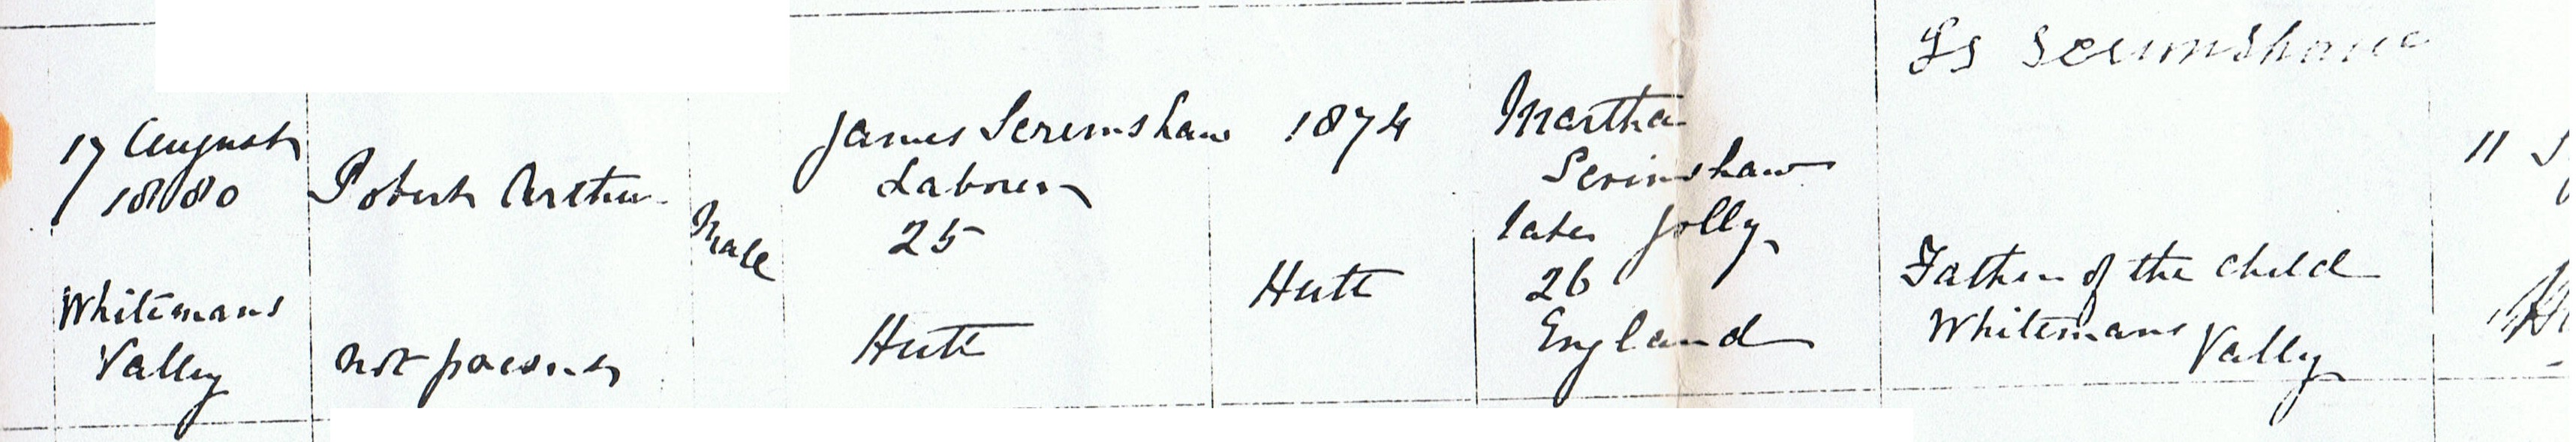 17 August
1880
Whitemans
Valley
Robert Arthur
not present
Male
James Scrimshaw
Labourer
25
Hutt
1874
Hutt
Martha
Scrimshaw
late Jolly
26
England
Js Scrimshaw
Father of the child
Whitemans Valley
11